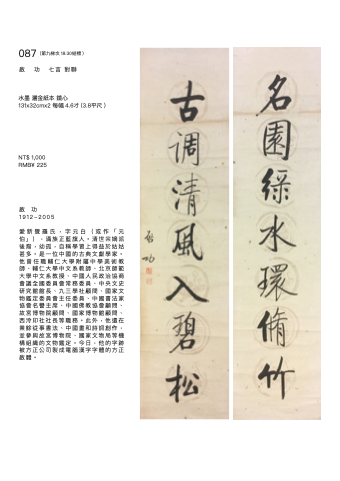 087（第九條次 18:30起標）
啟 功 七言 對聯
水墨 灑金紙本 鏡心
131x32cmx2 每幅 4.6才 (3.8平尺 )
NT$ 1,000
RMB¥ 225
啟 功
1912–2005
愛新覺羅氏，字元白（或作「元
伯」），滿族正藍旗人，清世宗嫡派
後裔，幼孤，自稱學習上得益於姑姑
甚多。是一位中國的古典文獻學家。
他曾任職輔仁大學附屬中學美術教
師、輔仁大學中文系教師、北京師範
大學中文系教授、中國人民政治協商
會議全國委員會常務委員、中央文史
研究館館長、九三學社顧問、國家文
物鑑定委員會主任委員、中國書法家
協會名譽主席、中國佛教協會顧問、
故宮博物院顧問、國家博物館顧問、
西泠印社社長等職務。此外，他還在
業餘從事書法、中國畫和詩詞創作，
並參與故宮博物院、國家文物局等機
構組織的文物鑑定。今日，他的字跡
被方正公司製成電腦漢字字體的方正
啟體。
名園綠水環脩竹
古调清風入碧松
啟功